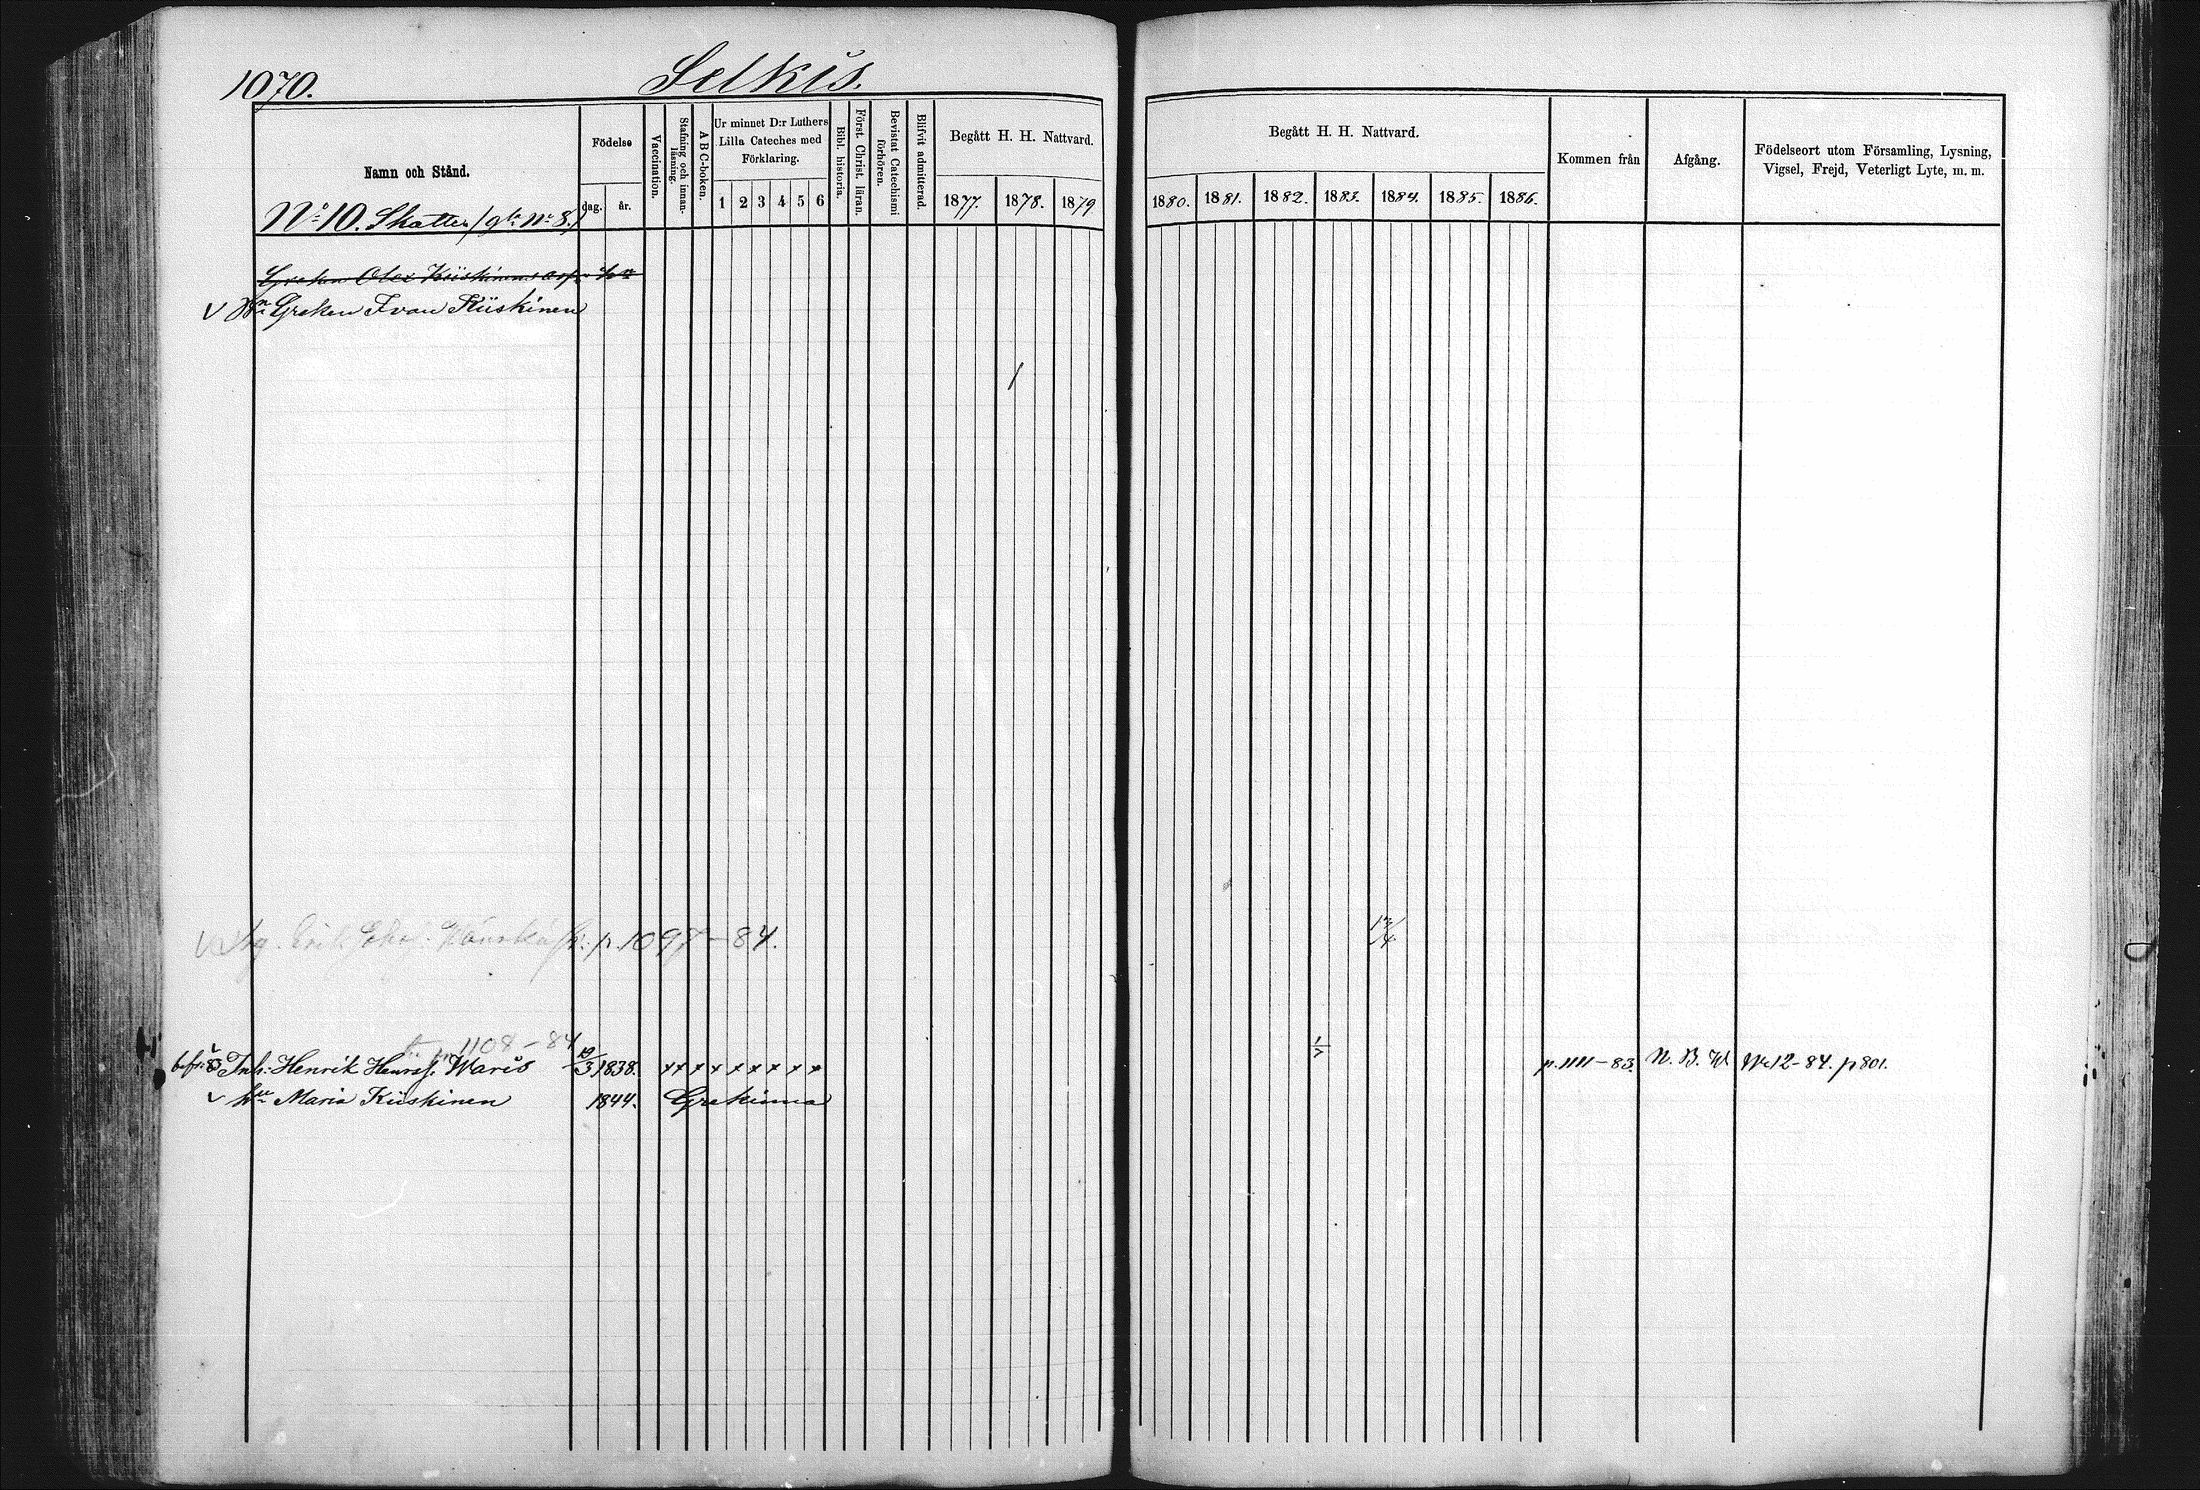 1070.
Selkis.
Namn och Stånd.
Födelse
dag.
år.
Vaccination.
Stafning och innanläsning.
ABC-boken.
Ur minnet D:r Luthers
Lilla Cateches med
Förklaring.
1 2 3 4 5 6
Bibl. historia.
Först. Christ. läran.
Bevistat Catechismi
förhören.
Blifvit admitterad.
Begått H. H. Nattvard.
1877. 1878. 1879
Begått H. H. Nattvard.
1880. 1881. 1882. 1883. 1884. 1885. 1886.
Kommen från
Afgång.
Födelseort utom Församling, Lysning,
Vigsel, Frejd, Veterligt Lyte, m. m.
No 10. Skatte (gla No 8.)
Greken Olex Kiiskinens
Bn Greken Ivan Kiiskinen
1
Erik p. 1097-84.
1108-84
Inh: Henrik Henrss. Waris 19/3 1838. x x x x x x x x x 1/7 p. 1111-83. N. B. W No 12-84. p 801.
hu Maria Kiiskinen 1844. Grekinna